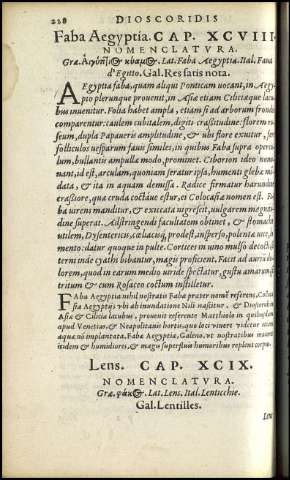 228 DIOSCORIDIS
Faba Aegyptia. CAP. XCVIII.
NOMENCLATURA.
Græ. Lat. Faba Aegyptia. Ital. Faua
d'Egitto. Gal. Res satis nota.
AEgyptia faba, quam aliqui Ponticam uocant, in Aegy-
pto plerunque prouenit, in Asia etiam Ciliciæque lacu-
bus inuenitur. Folia habet ampla, etiam si ad arborum frondes
comparentur. caulem cubitalem, digiti crassitudine: florem ro-
seum, dupla Papaueris amplitudine, & ubi flore exuitur, fert
folliculos uesparum fauis similes, in quibus Faba supra opercu-
lum, bullantis ampulla modo, prominet. Ciborion ideo nomi-
nant, id est, arculam, quoniam seratur ipsa, humenti gleba mā-
data, & ita in aquam demissa. Radice firmatur harundine
crassiore, qua cruda coctáue estur, ei Colocasia nomen est. Fa-
ba uirens manditur, & exiccata nigrescit, uulgarem magnitu-
dine superat. Adstringendi facultatem obtinet, & stomacho
utilem, Dysentericis, cœliacisq; prodest, inspersa, polenta uice,
mento: datur quoque in pulte. Cortices in uino mulso decocti
terni inde cyathi bibantur, magis proficient. Facit ad auriū do-
lorem, quod in earum medio uiride spectatur, gustu amarum,
tritum & cum Rosaceo coctum instilletur.
Faba Aegyptia nihil nostratis Fabæ præter nomē referens,
sia Aegypti; ubi ab inundatione Nili nascitur, &
Asiæ & Ciliciæ lacubus, prouenit referente Matthiolo in quibusdam
apud Venetias, & Neapolitanis hortis, quæ loci uiuere uidetur
aquæ uti implantata. Faba Aegyptia, Galeno, ut nostratibus
itidem & humidiores, & magis superfluis humoribus replent corpo-
Lens. CAP. XCIX.
NOMENCLATURA.
Græ. φακὸς. Lat. Lens. Ital. Lenticchie.
Gal. Lentilles.